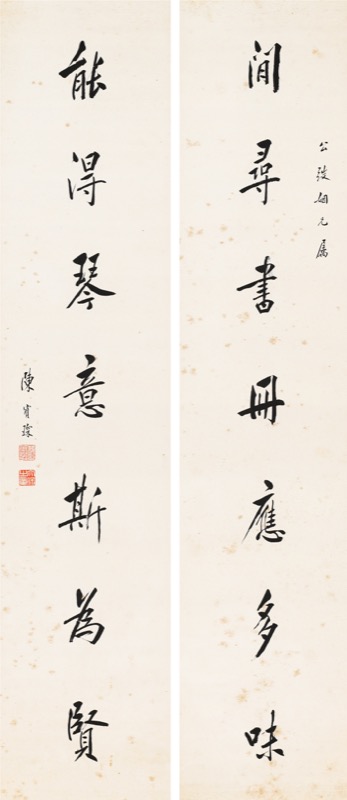 閒尋書冊應多味
公姻兄属
能得琴意斯為賢
陳寶琛